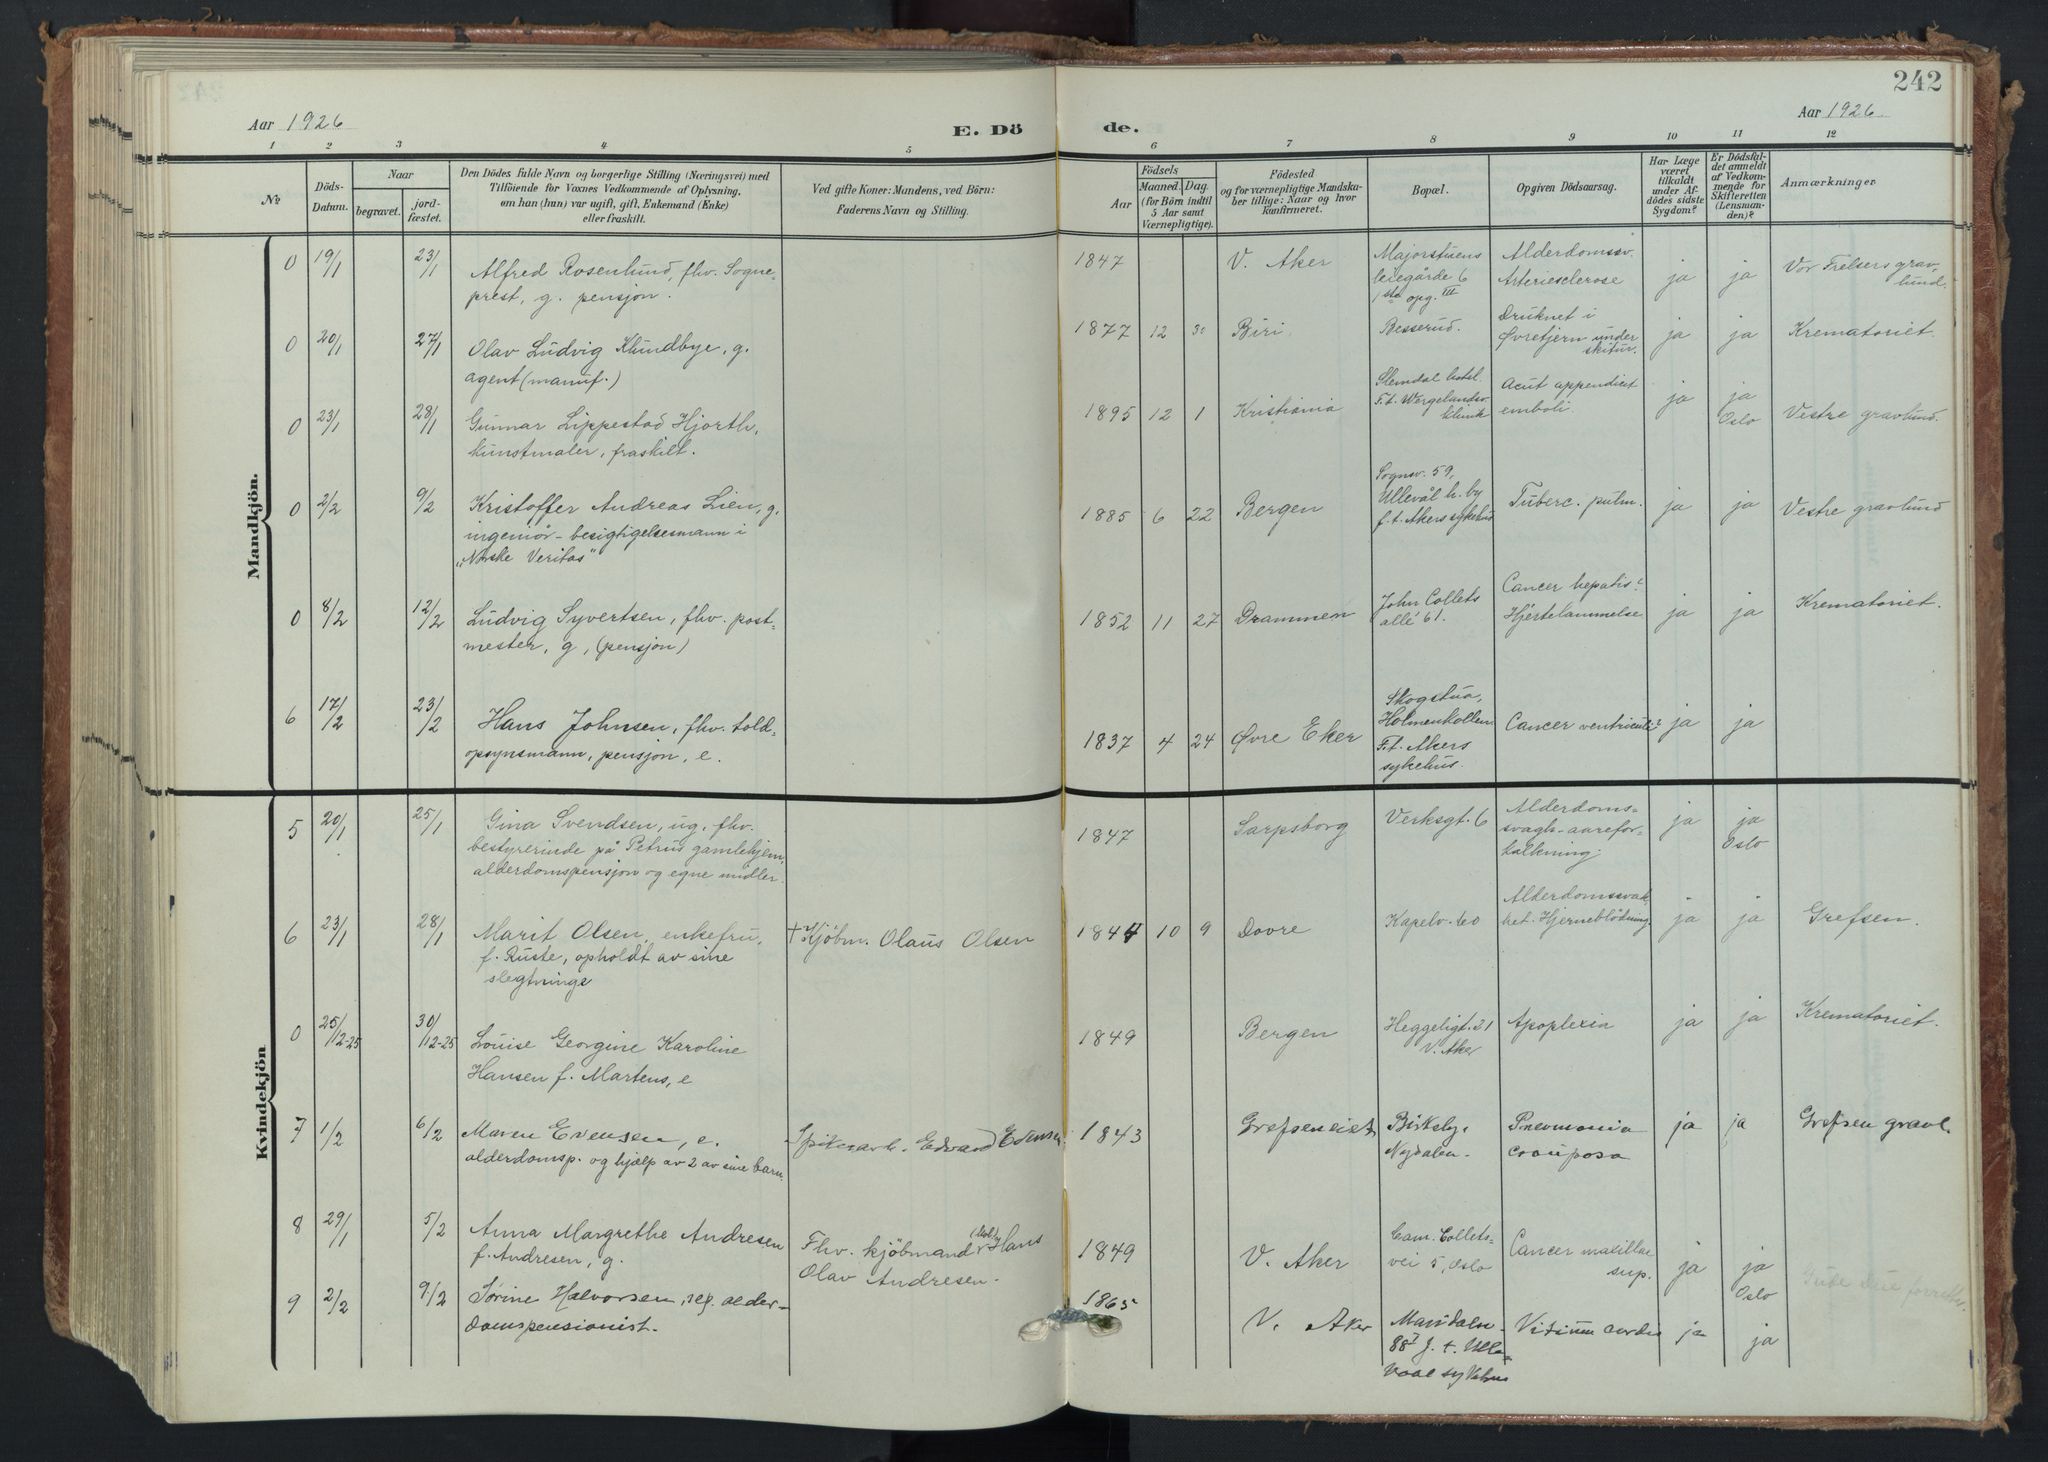 242
Aar 1926
E. Dö
de.
Aar 1926
1 2 3 4 5 6 7 8 9 10 11 12
№
Döds-
Datum.
Naar
begravet.
jord-
fæstet.
Den Dödes fulde Navn og borgerlige Stilling (Næringsvei) med
Tilföiende for Voxnes Vedkommende af Oplysning,
om han (hun) var ugift, gift, Enkemand (Enke)
eller fraskilt.
Ved gifte Koner: Mandens, ved Börn:
Faderens Navn og Stilling.
Födsels
Aar
Maaned. Dag.
(for Börn indtil
5 Aar samt
Værnepligtige).
Födested
og for værnepligtige Mandska-
ber tillige: Naar og hvor
konfirmeret.
Bopæl.
Opgiven Dödsaarsag.
Har Læge
været
tilkaldt
under Af-
dödes sidste
Sygdom?
Er Dödsfal-
det anmeldt
af Vedkom-
mende for
Skifteretten
(Lensman-
den)?
Anmærkninger
Mandkjön.
0 19/1 23/1 Alfred Rosenlund, fhv. Sogne-
prest, g. pensjon.
1847 V. Aker
Majorstuens
leiegårde 6
1ste opg. III
Alderdomssv.
Arteriesclerose
ja ja
Vor Frelsers grav-
lund.
0 20/1 27/1 Olav Ludvig Klundbye, g.
agent (manuf.)
1877 12 30 Biri. Besserud.
Druknet i
Øvretjern under
skitur.
ja ja Krematoriet.
0 23/1 28/1 Gunnar Lippestad Hjorth,
kunstmaler, fraskilt.
1895 12 1 Kristiania
Slemdal hotel.
F.t. Wergelandsv.
klinik
Acut appendicit
emboli.
ja ja
Oslo
Vestre gravlund.
0 2/2 9/2 Kristoffer Andreas Lien, g.
ingeniør - besigtigelsesmann i
"Norske Veritas"
1885 6 22 Bergen
Sognsv. 59,
Ullevål h. by
f.t. Akers sykehus
Tuberc. pulm.
ja ja Vestre gravlund
0 8/2 12/2 Ludvig Syvertsen, fhv. post-
mester, g, (pensjon)
1852 11 27 Drammen
John Collets
allé 61.
Cancer hepatis?
Hjertelammelse
ja ja Krematoriet.
6 17/2 23/2 Hans Johnsen, fhv. told-
opsynsmann, pensjon, e.
1837 4 24 Øvre Eker
Skogstua,
Holmenkollen
F.t. Akers
sykehus.
Cancer ventriculi? ja ja
Kvindekjön.
5 20/1 25/1 Gina Svendsen, ug. fhv.
bestyrerinde på Petrus gamlehjem,
alderdomspensjon og egne midler.
1847 Sarpsborg Verksgt. 6
Alderdoms-
svagh. aarefor-
kalkning.
ja ja
Oslo
6 23/1 28/1 Marit Olsen, enkefru,
f. Ruste, opholdt av sine
slegtninge
† Kjøbm. Olaus Olsen
1844 10 9 Dovre Kapelv. 40
Alderdomssvak-
het. Hjerneblødning
ja ja Grefsen.
0 25/12-25 30/12-25 Louise Georgine Karoline
Hansen f. Martens, e
1849 Bergen
Heggeligt. 21
V. Aker
Apoplexia ja ja Krematoriet.
7 1/2 6/2 Maren Evensen, e.
alderdomsp. og hjælp av 2 av sine barn.
Spikerarb. Edvard Evensen
1843 Grefseneiet
Birkeby,
Nydalen.
Pneumonia
crouposa
ja ja Grefsen gravl.
8 29/1 5/2 Anna Margrethe Andresen
f. Andresen, g.
Fhv. kjøbmand Hans
Olav Andresen.
1849 V. Aker
Cam. Collets-
vei 5, Oslo
Cancer maxillae
sup.
ja ja
Oslo
9 2/2 9/2 Sørine Halvorsen, ug. alder-
domspensionist.
1865 V. Aker
Maridalsv.
88 f. t. Ulle-
vaal sykehus
Vitium cordis ja ja